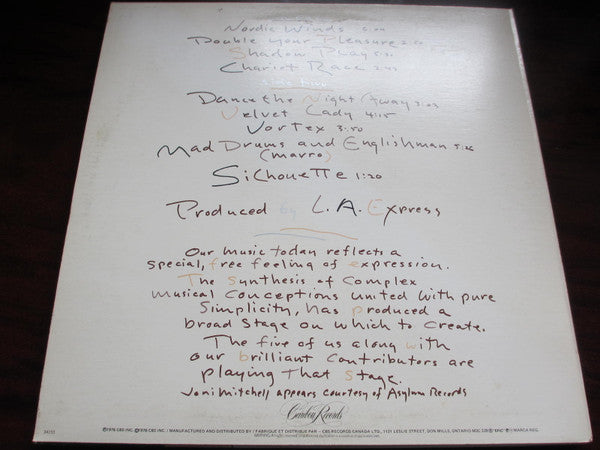 Nordic Winds 5:04
Double Your Pleasure
Shadow Play
Chariot Race
Dance the Night Away
Velvet Lady 4:15
Vortex 3:50
Mad Drums and Englishman
(mauro)
Silhouette 1:20
Produced by L.A. Express
Our music today reflects a
special, free feeling of expression.
The synthesis of Complex
musical conceptions united with pure
Simplicity, has produced a
broad stage on which to create.
The five of us along with
our brilliant contributors are
playing that stage.
Joni Mitchell appears courtesy of Asylum Records
Caribou Records
©1976 CBS INC. ℗1976 CBS INC. / MANUFACTURED AND DISTRIBUTED BY / FABRIQUÉ ET DISTRIBUÉ PAR – CBS RECORDS CANADA LTD., 1121 LESLIE STREET, DON MILLS, ONTARIO